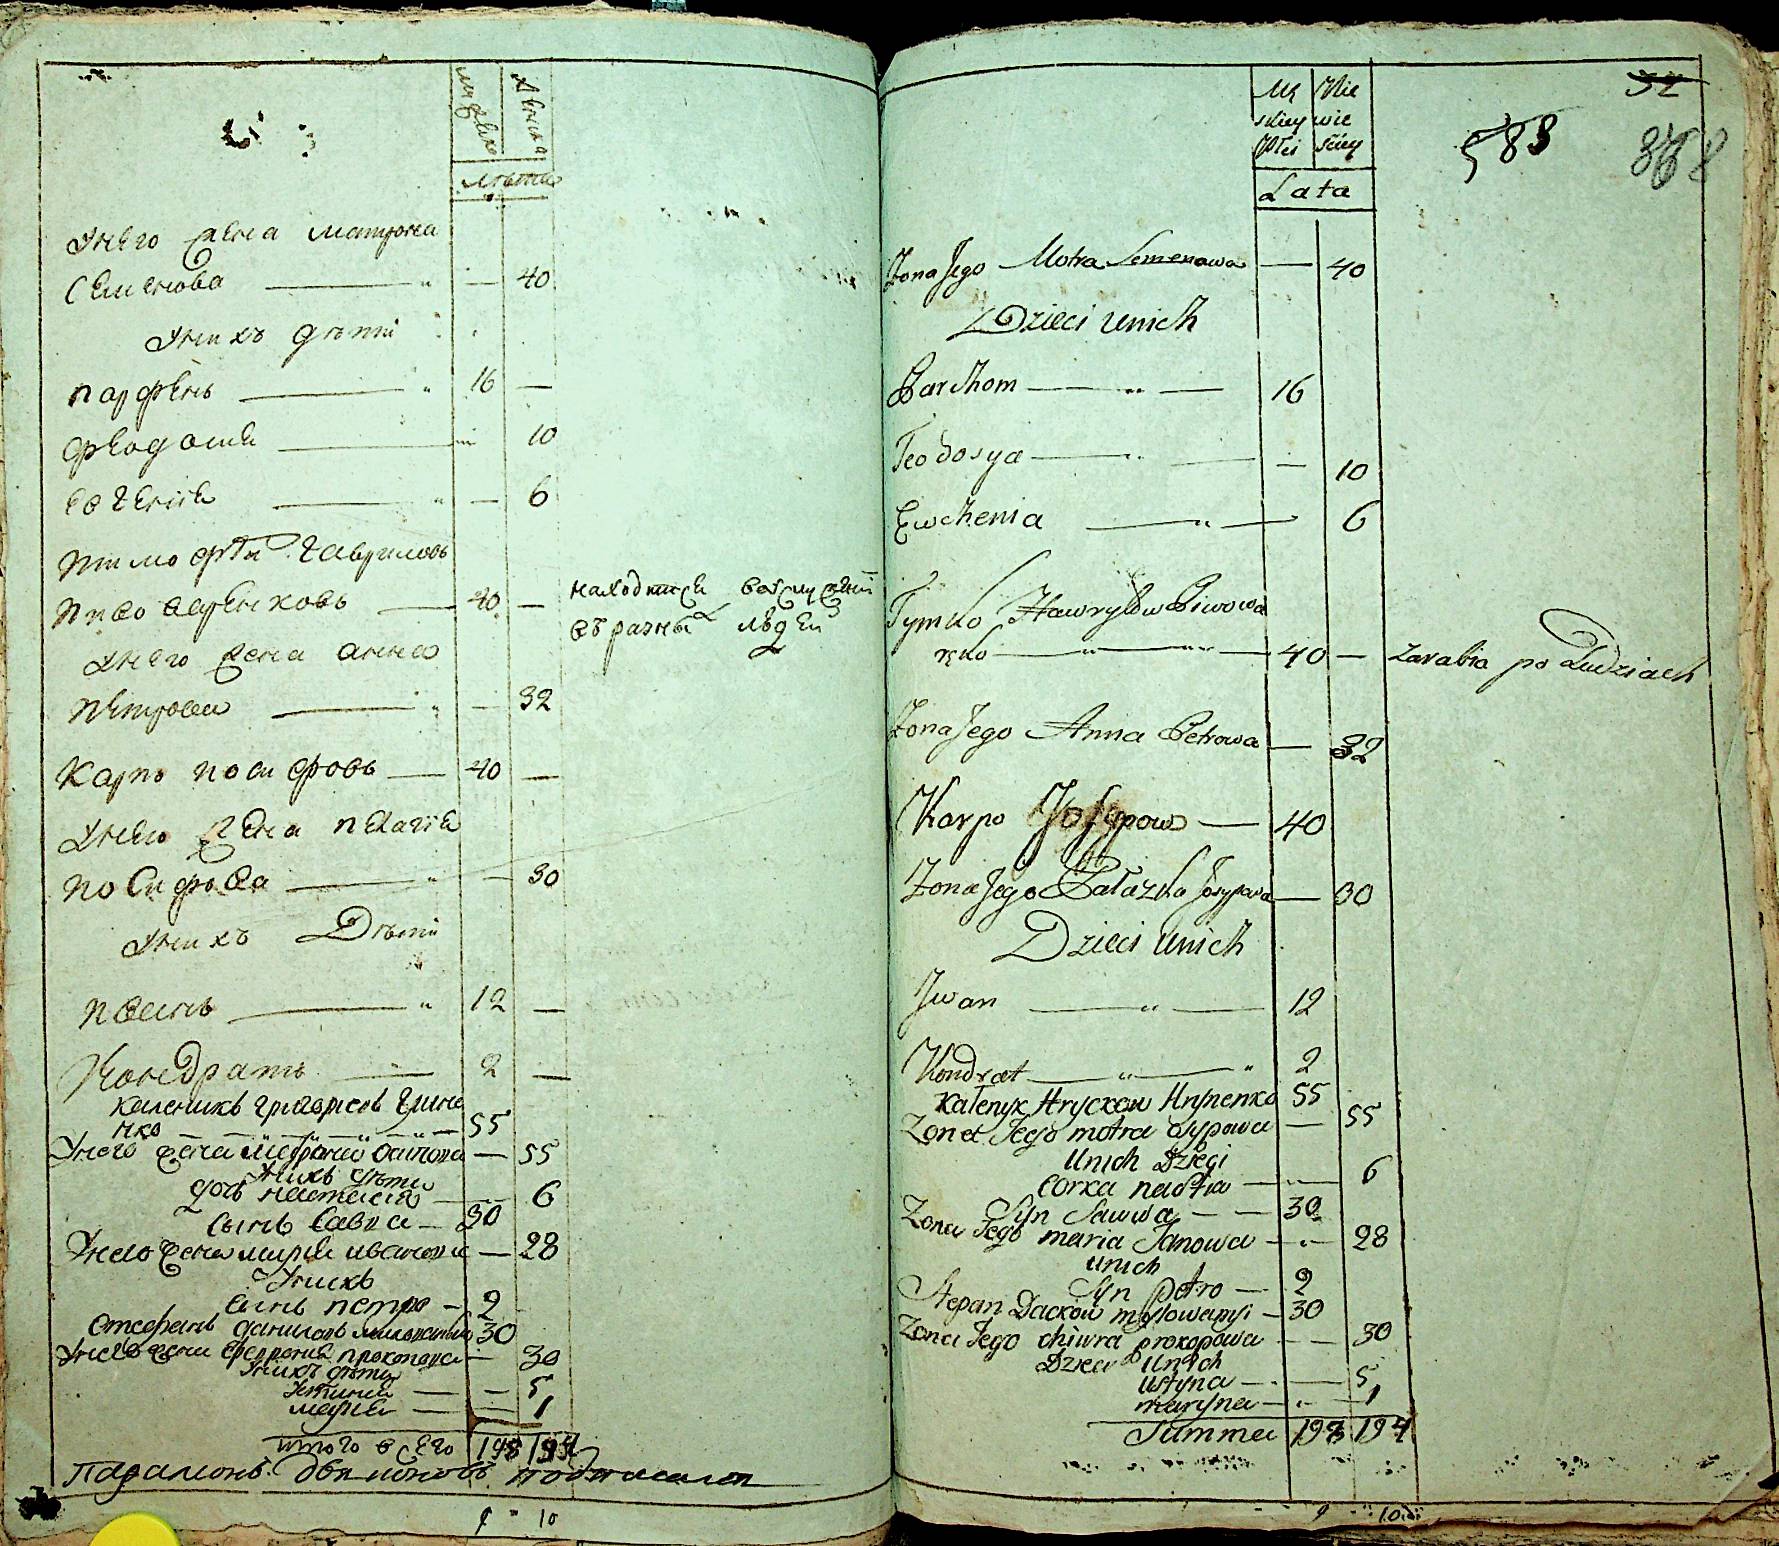 мужеска
женска
лѣта
Унего жена матрона
Семенова — 40
Унихъ дѣти
парфень — 16 —
феодосия — 10
евгения — 6
тимофей гавриловъ
пивоваренковъ — 40 —
находится вослужении
въ разныхъ людей
Унего жена анна
петрова — 32
Карпъ иосифовъ — 40 —
Унего жена пелагия
иосифова — 30
Унихъ Дѣти
иванъ — 12 —
Кондратъ — 2 —
каленикъ григорьевъ грине
нко — 55
Унего жена матрона осипова — 55
Унихъ дѣти
дочь настасия — 6
сынъ савва — 30
Унего жена мария иванова — 28
Унихъ
сынъ петръ — 2
стефанъ даниловъ 30
Унего жена феврония прокопова — 30
Унихъ дѣти
Устиния — 5
мария — 1
итого всего 198 194
Парамонъ подписался
9 " 10
Mę
skiey
Płci
Nie
wie
ściey
Lata
52
588
368
Zona Jego Motra Semenowa — 40
Dzieci unich
Parchom — 16
Teodosya — 10
Ewchenia — 6
Tymko Hawryłow Piwowa
ręko — 40 — zarabia po Ludziach
Zona Jego Anna Petrowa — 32
Karpo Josypow — 40
Zona Jego Pałazka Josypowa — 30
Dzieci unich
Jwan — 12
Kondrat — 2
Kałenyk Hryckow Hrynenko 55
Zona Jego motra osypowa — 55
Unich Dzieci
corka nastia — 6
Syn Sawwa — 30
Zona Jego maria Janowa — 28
unich
Syn petro — 2
Stepan Dackow — 30
Zona Jego chiwra prokopowa — 30
Dzieci Unich
ustyna — 5
maryna — 1
Summa 198 194
9 " 10